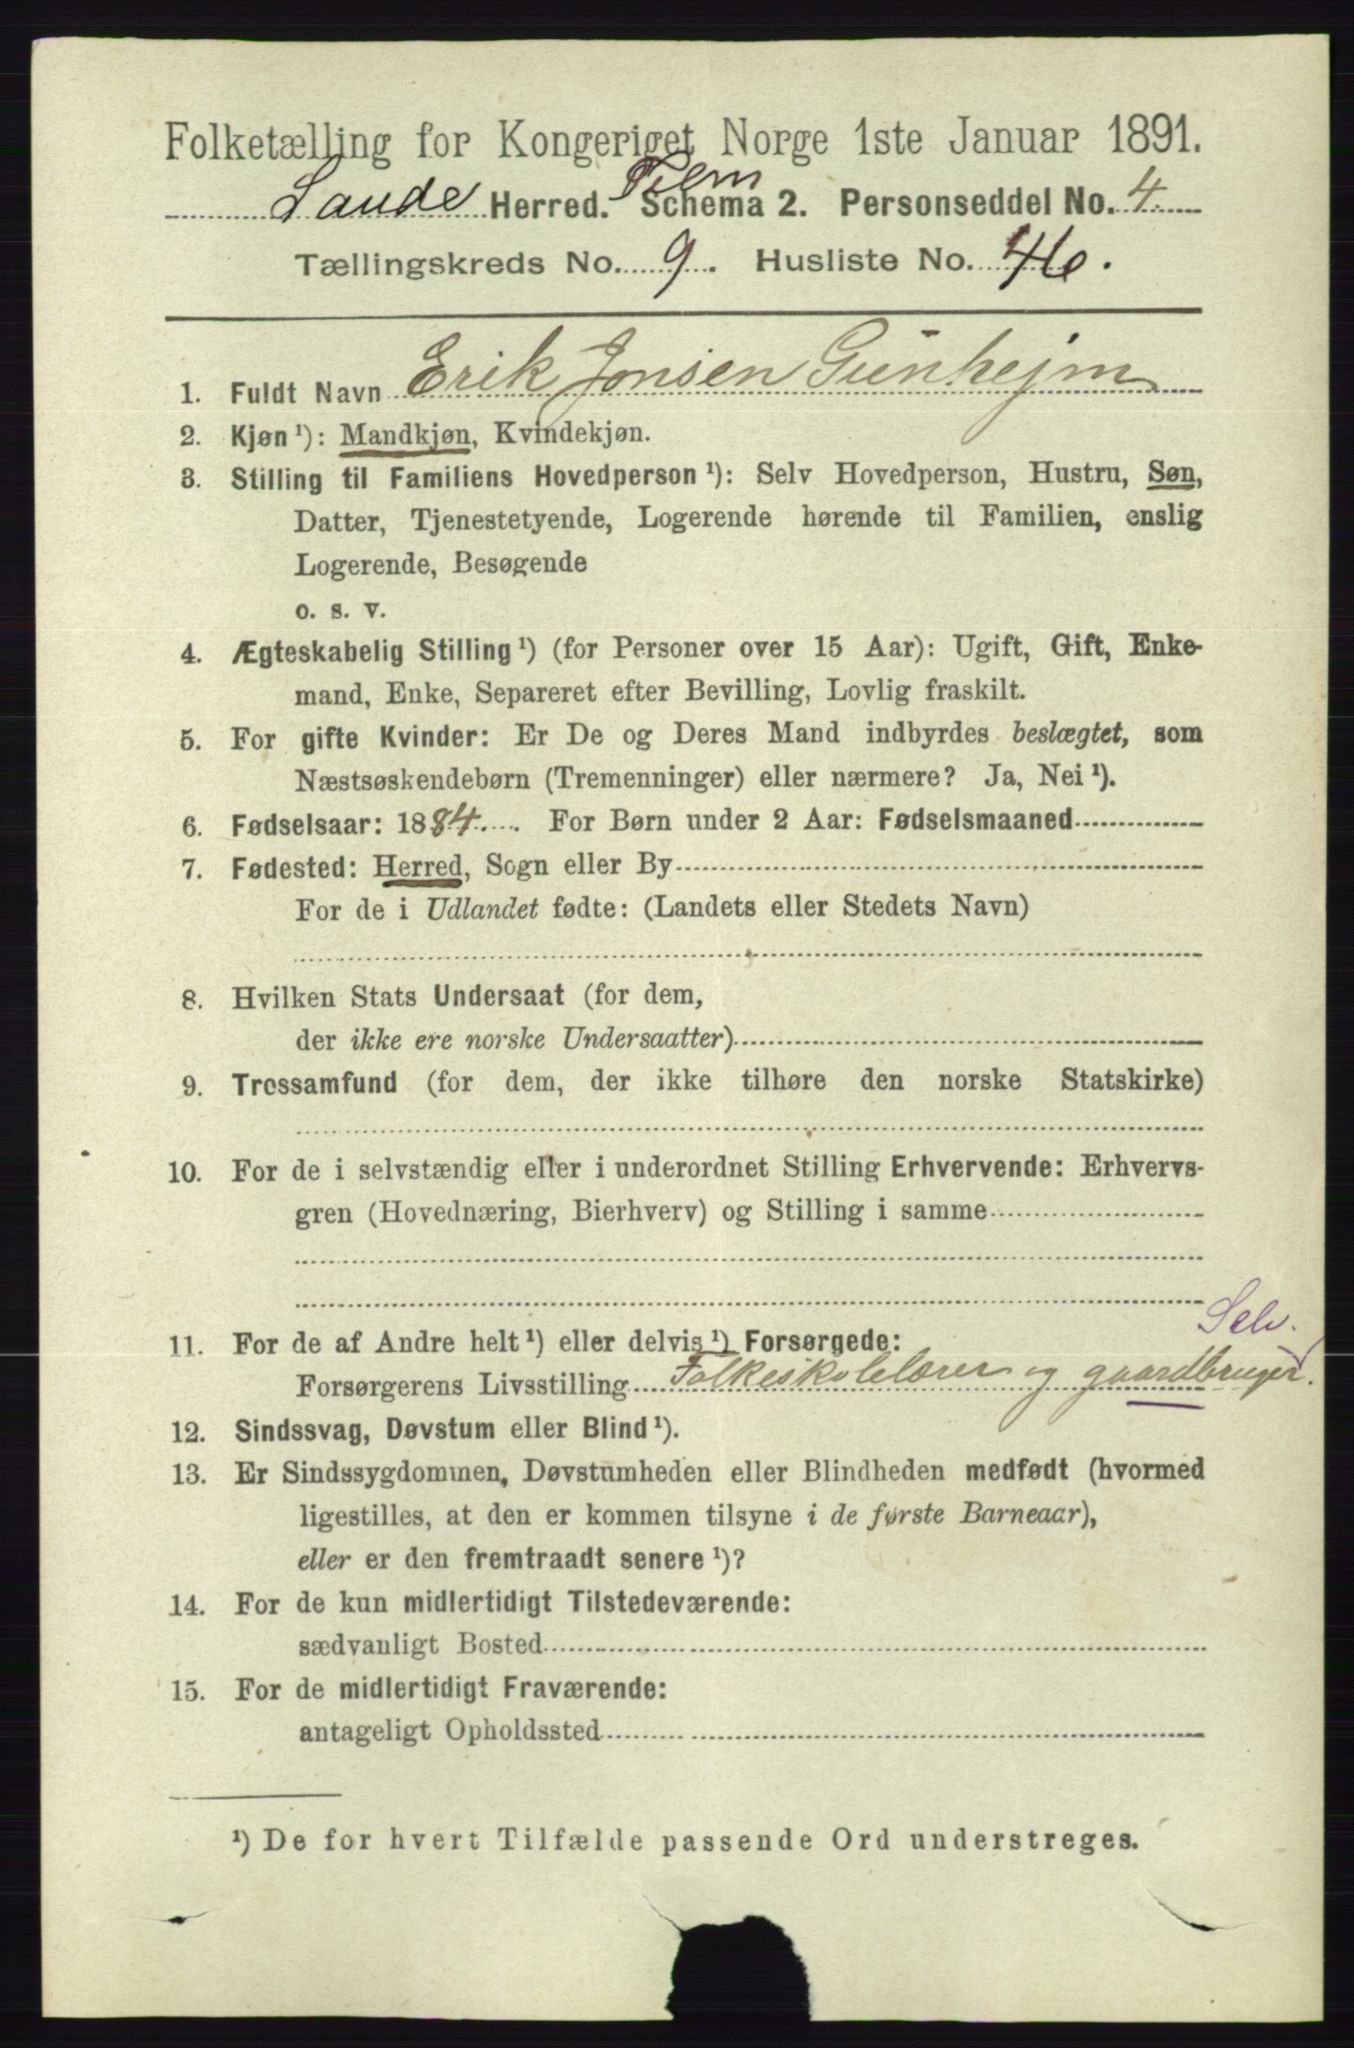 Folketælling for Kongeriget Norge 1ste Januar 1891.
Saude Herred. Tilem Schema 2. Personseddel No. 4.
Tællingskreds No. 9. Husliste No. 46.
1. Fuldt Navn Erik Jonsen Gunhejm
2. Kjøn¹): Mandkjøn, Kvindekjøn.
3. Stilling til Familiens Hovedperson¹): Selv Hovedperson, Hustru, Søn,
Datter, Tjenestetyende, Logerende hørende til Familien, enslig
Logerende, Besøgende
o. s. v.
4. Ægteskabelig Stilling¹) (for Personer over 15 Aar): Ugift, Gift, Enke-
mand, Enke, Separeret efter Bevilling, Lovlig fraskilt.
5. For gifte Kvinder: Er De og Deres Mand indbyrdes beslægtet, som
Næstsøskendebørn (Tremenninger) eller nærmere? Ja, Nei¹).
6. Fødselsaar: 1884. For Børn under 2 Aar: Fødselsmaaned
7. Fødested: Herred, Sogn eller By
For de i Udlandet fødte: (Landets eller Stedets Navn)
8. Hvilken Stats Undersaat (for dem,
der ikke ere norske Undersaatter)
9. Trossamfund (for dem, der ikke tilhøre den norske Statskirke)
10. For de i selvstændig eller i underordnet Stilling Erhvervende: Erhvervs-
gren (Hovednæring, Bierhverv) og Stilling i samme
Selv.
11. For de af Andre helt¹) eller delvis¹) Forsørgede:
Forsørgerens Livsstilling Folkeskolelærer og gaardbruger.
12. Sindssvag, Døvstum eller Blind¹).
13. Er Sindssygdommen, Døvstumheden eller Blindheden medfødt (hvormed
ligestilles, at den er kommen tilsyne i de første Barneaar),
eller er den fremtraadt senere¹)?
14. For de kun midlertidigt Tilstedeværende:
sædvanligt Bosted
15. For de midlertidigt Fraværende:
antageligt Opholdssted
¹) De for hvert Tilfælde passende Ord understreges.